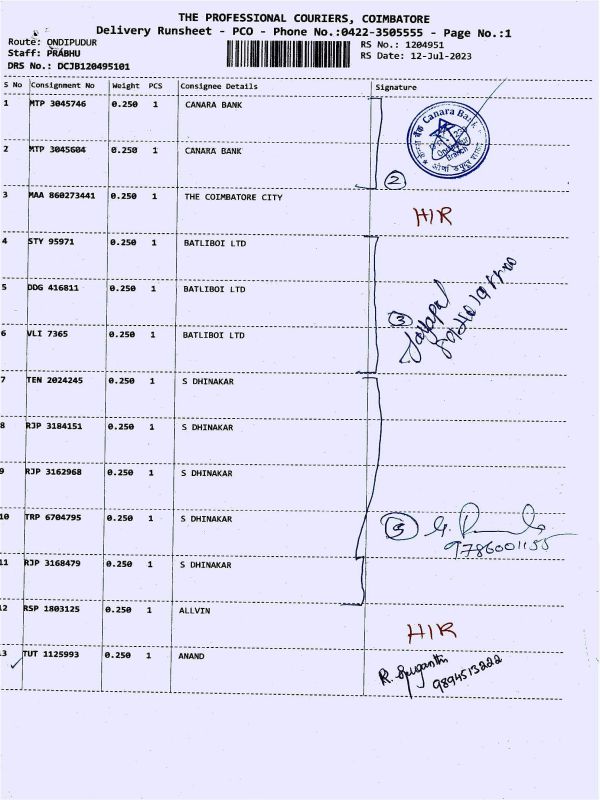 THE PROFESSIONAL COURIERS, COIMBATORE
Delivery Runsheet - PCO - Phone No.:0422-3505555 - Page No.:1
Route: ONDIPUDUR
RS No.: 1204951
Staff: PRABHU
RS Date: 12-Jul-2023
DRS No.: DCJB120495101
S No Consignment No Weight PCS Consignee Details Signature
1 MTP 3045746 0.250 1 CANARA BANK
Canara Bank
Branch
2 MTP 3045604 0.250 1 CANARA BANK
2
3 MAA 860273441 0.250 1 THE COIMBATORE CITY
HIR
4 STY 95971 0.250 1 BATLIBOI LTD
5 DDG 416811 0.250 1 BATLIBOI LTD
3
6 VLI 7365 0.250 1 BATLIBOI LTD
7 TEN 2024245 0.250 1 S DHINAKAR
8 RJP 3184151 0.250 1 S DHINAKAR
9 RJP 3162968 0.250 1 S DHINAKAR
10 TRP 6704795 0.250 1 S DHINAKAR
5
9786001155
11 RJP 3168479 0.250 1 S DHINAKAR
12 RSP 1803125 0.250 1 ALLVIN
HIR
13 TUT 1125993 0.250 1 ANAND
R. Suganthi
9894513222